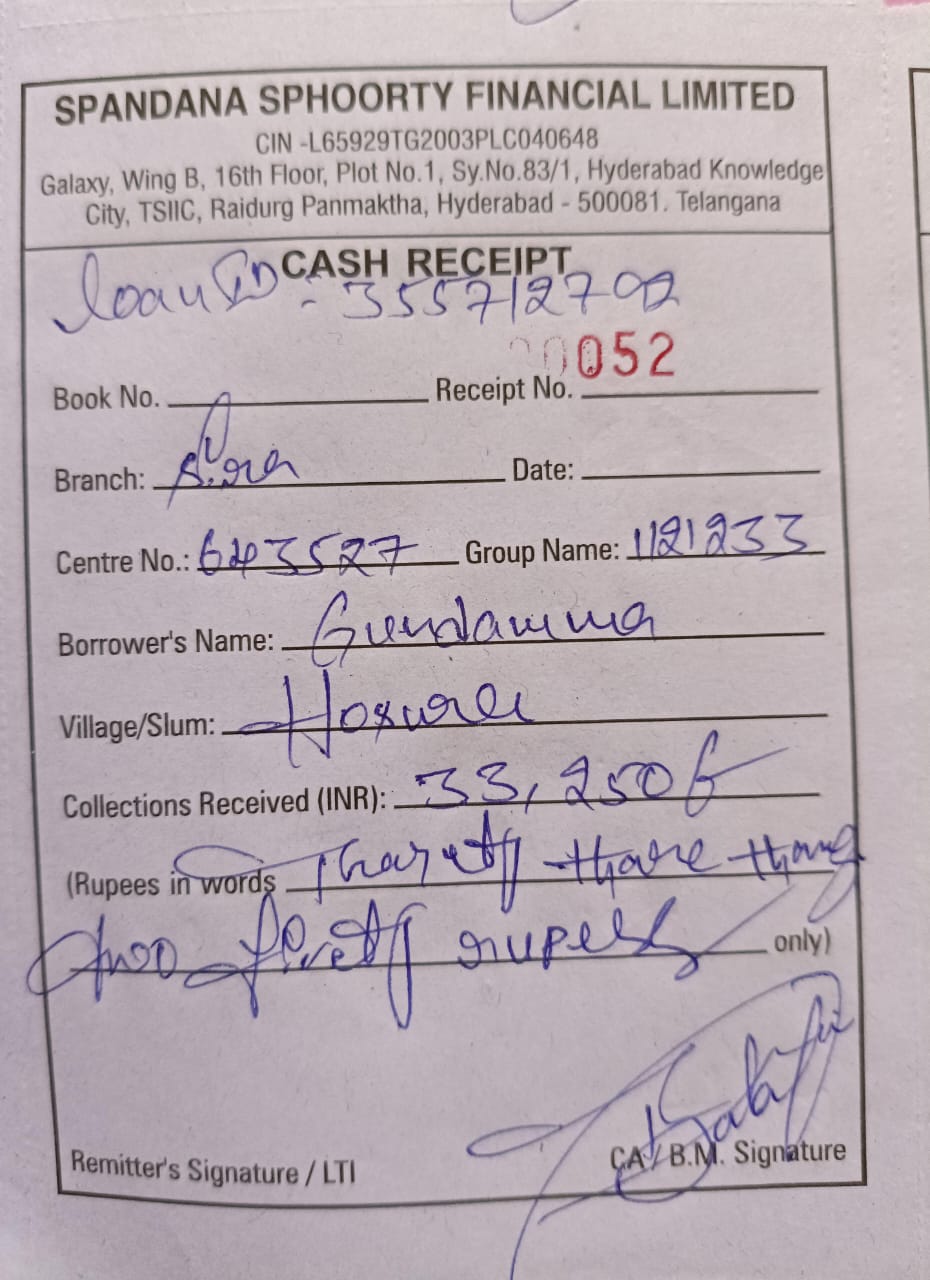 SPANDANA SPHOORTY FINANCIAL LIMITED
CIN -L65929TG2003PLC040648
Galaxy, Wing B, 16th Floor, Plot No.1, Sy.No.83/1, Hyderabad Knowledge
City, TSIIC, Raidurg Panmaktha, Hyderabad - 500081. Telangana
CASH RECEIPT
loan ID - 355712702
Book No. Receipt No. 00052
Branch: Sira Date:
Centre No.: 643527 Group Name: 1121233
Borrower's Name: Gundamma
Village/Slum:
Collections Received (INR): 33,250
(Rupees in words three
two rupees only)
Remitter's Signature / LTI CA / B.M. Signature